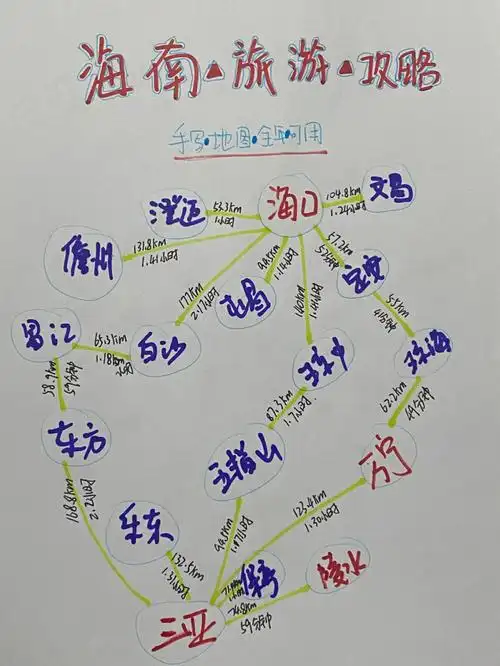 海南▲旅游▲攻略
手写·地图·全年可用
澄迈
53.3km
1小时
海口
104.8km
1.24小时
文昌
儋州
131.8km
1.41小时
177km
2.1小时
屯昌
99.5km
1.14小时
140km
57.2km
57分钟
定安
55km
41分钟
昌江
65.3km
1.18小时
白沙
琼中
琼海
87.3km
1.7小时
62.2km
49分钟
东方
五指山
万宁
168.8km
2.12小时
乐东
132.5km
1.51小时
99.5km
123.4km
1.30小时
保亭
陵水
74.8km
59分钟
三亚